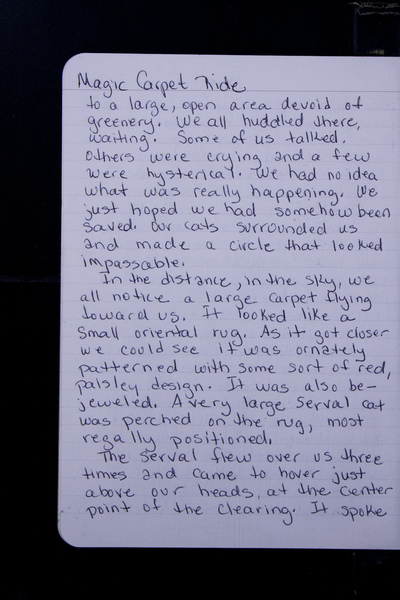 Magic Carpet Ride
to a large, open area devoid of
greenery. We all huddled there,
waiting. Some of us talked.
Others were crying and a few
were hysterical. We had no idea
what was really happening. We
just hoped we had somehow been
saved. Our cats surrounded us
and made a circle that looked
impassable.
In the distance, in the sky, we
all notice a large carpet flying
toward us. It looked like a
small oriental rug. As it got closer
we could see it was ornately
patterned with some sort of red,
paisley design. It was also be-
jeweled. A very large Serval cat
was perched on the rug, most
regally positioned.
The serval flew over us three
times and came to hover just
above our heads, at the center
point of the clearing. It spoke